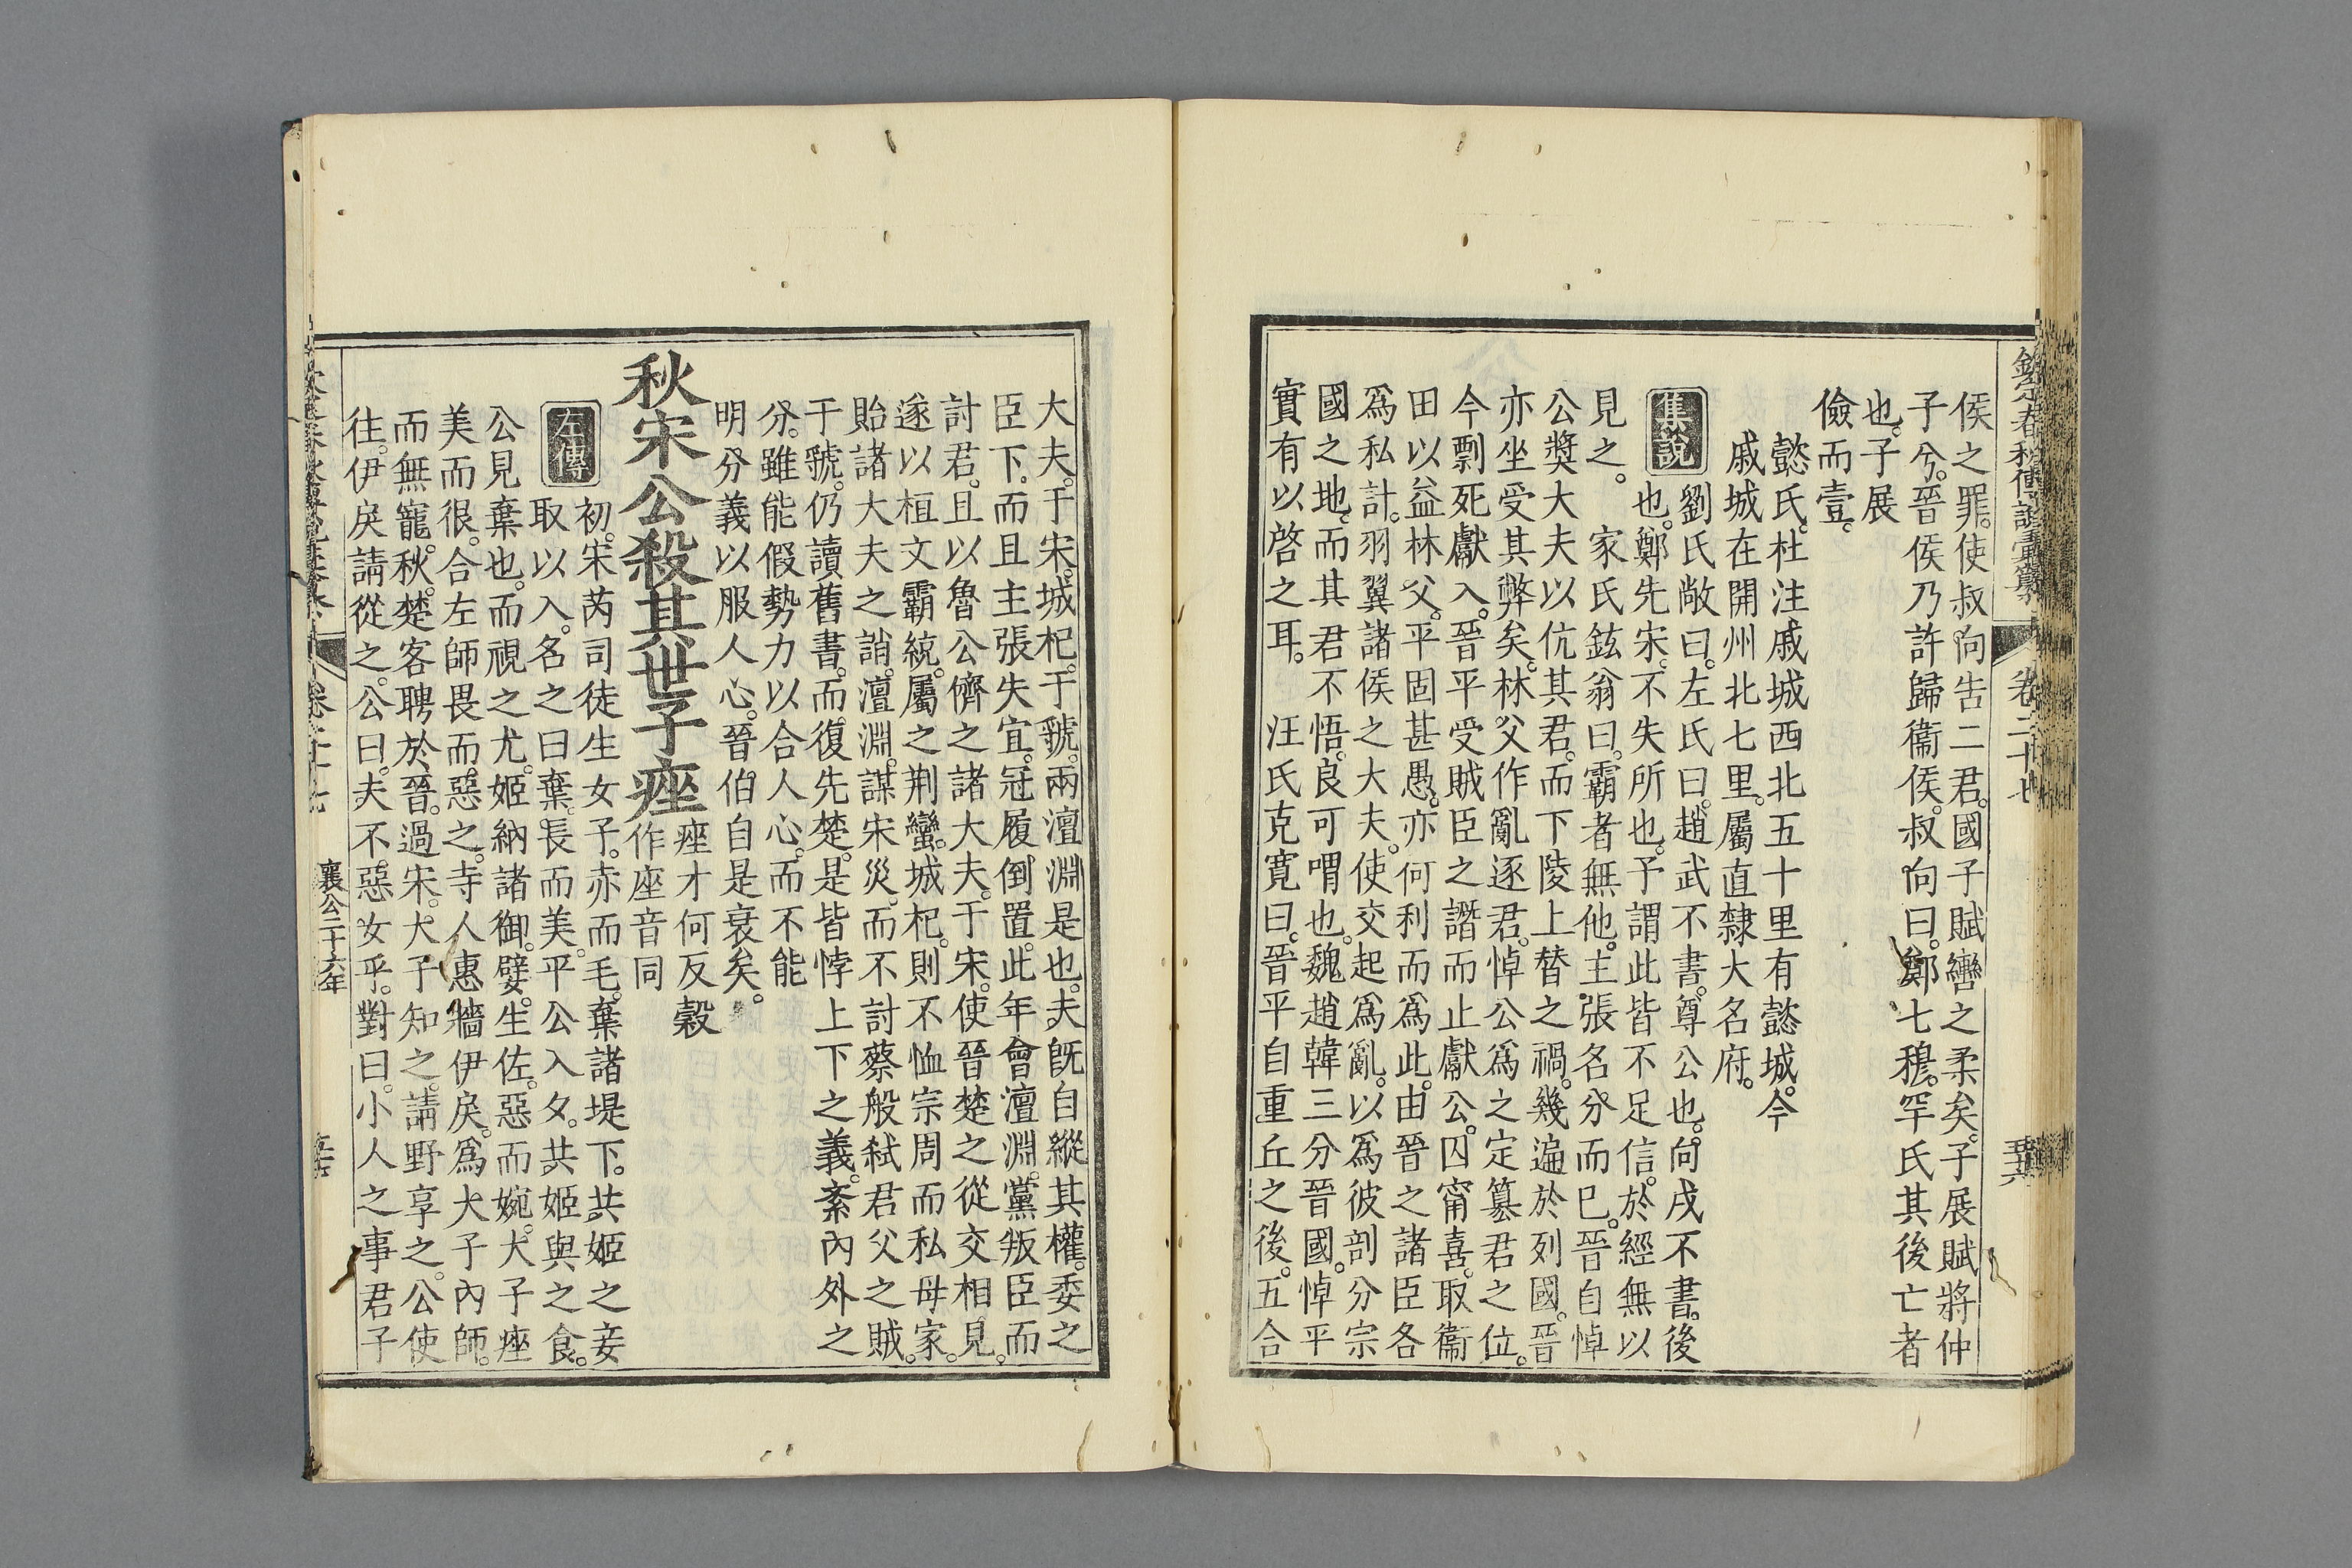 欽定春秋傳說彙纂 卷二十七
侯之罪。使叔向告二君。國子賦轡之柔矣。子展賦將仲
子兮。晉侯乃許歸衞侯。叔向曰。鄭七穆。罕氏其後亡者
也。子展
儉而壹。
懿氏。杜注。戚城西北五十里有懿城。今
戚城在開州北七里。屬直隸大名府。
集說
劉氏敞曰。左氏曰。趙武不書。尊公也。向戌不書。後
也。鄭先宋。不失所也。予謂此皆不足信。於經無以
見之。 家氏鉉翁曰。霸者無他。主張名分而已。晉自悼
公奬大夫以伉其君。而下陵上替之禍。幾遍於列國。晉
亦坐受其弊矣。林父作亂逐君。悼公爲之定篡君之位。
今剽死獻入。晉平受賊臣之譖而止獻公。囚甯喜。取衞
田以益林父。平固甚愚。亦何利而爲此。由晉之諸臣各
爲私計。羽翼諸侯之大夫。使交起爲亂。以爲彼剖分宗
國之地。而其君不悟。良可喟也。魏趙韓三分晉國。悼平
實有以啓之耳。 汪氏克寬曰。晉平自重丘之後。五合
大夫。于宋。城杞。于虢。兩澶淵是也。夫旣自縱其權。委之
臣下。而且主張失宜。冠履倒置。此年會澶淵。黨叛臣而
討君。且以魯公儕之諸大夫。于宋。使晉楚之從交相見。
遂以桓文霸統。屬之荆蠻。城杞。則不恤宗周而私母家。
貽諸大夫之誚。澶淵。謀宋災。而不討蔡般弒君父之賊。
于虢。仍讀舊書。而復先楚。是皆悖上下之義。紊內外之
分。雖能假勢力以合人心。而不能
明分義以服人心。晉伯自是衰矣。
秋宋公殺其世子痤
痤才何反穀
作座音同
左傳
初。宋芮司徒生女子。赤而毛。棄諸堤下。共姬之妾
取以入。名之曰棄。長而美。平公入夕。共姬與之食。
公見棄也。而視之尤。姬納諸御。嬖。生佐。惡而婉。大子痤
美而很。合左師畏而惡之。寺人惠牆伊戾。爲大子內師。
而無寵。秋。楚客聘於晉。過宋。大子知之。請野享之。公使
往。伊戾請從之。公曰。夫不惡女乎。對曰。小人之事君子
襄公二十六年